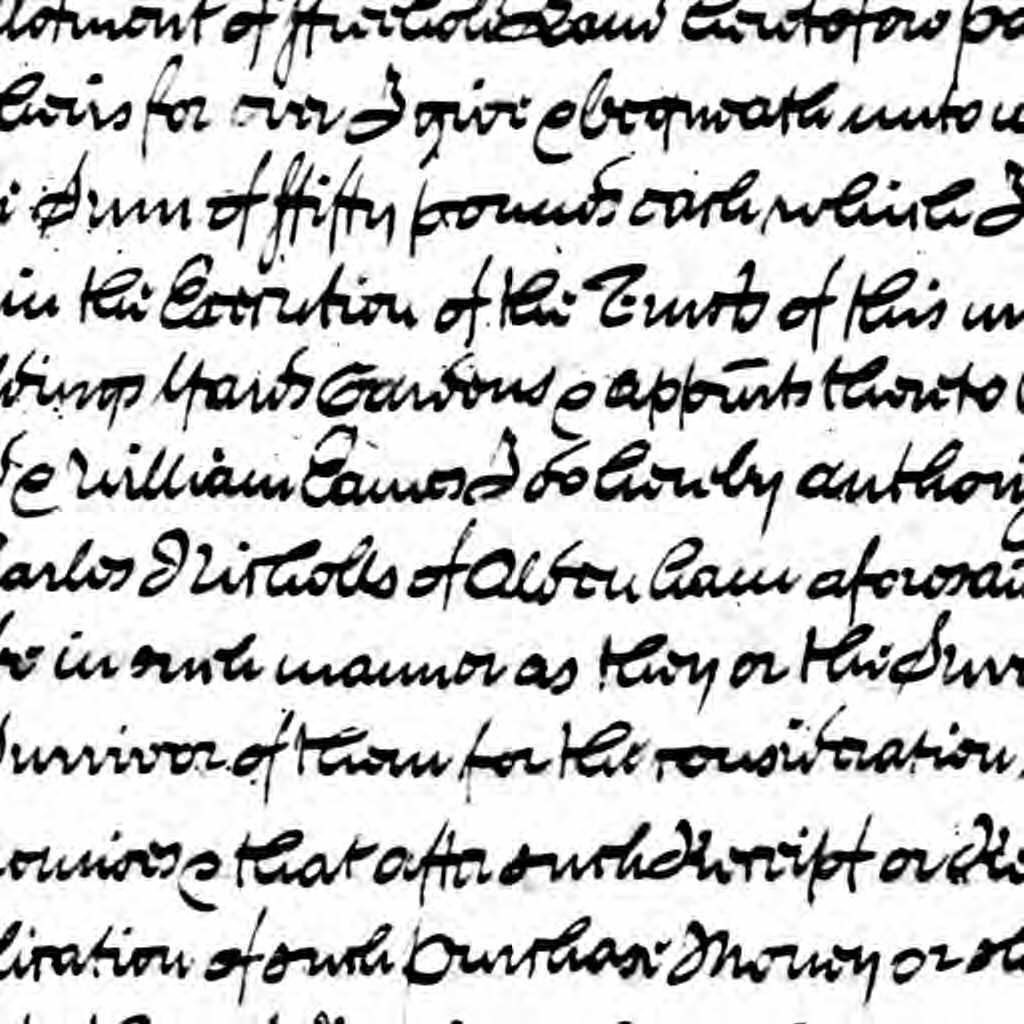 lotment of ffreehold Land heretofore pa
heirs for ever I give & bequeath unto
Sum of ffifty pounds each which I
in the Execution of the Trusts of this
ldings Yards Gardens & appurts thereto
& William Eames I do hereby authori
harles Nicholls of Aldenham aforesai
be in such manner as they or the Surv
Survivor of them for the consideration
remises & that after such Receipt or Re
lication of such Purchase Money or